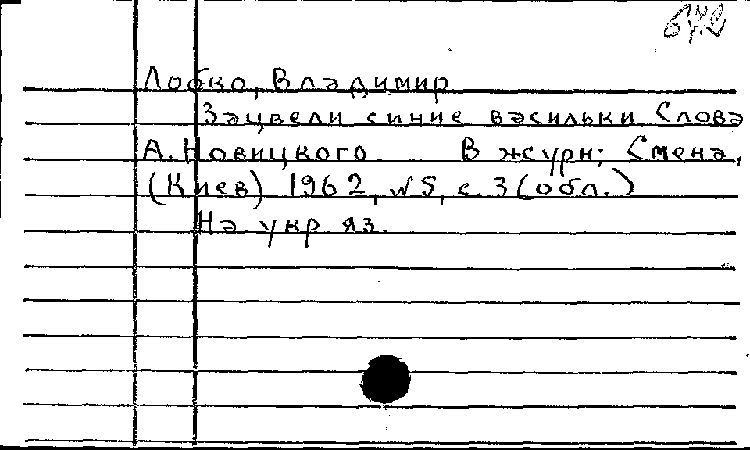 Лобко, Владимир
Зацвели синие васильки Слова
А. Новицкого В журн; Смена,
(Киев) 1962, №5, с. 3 (обл.)
На укр яз.